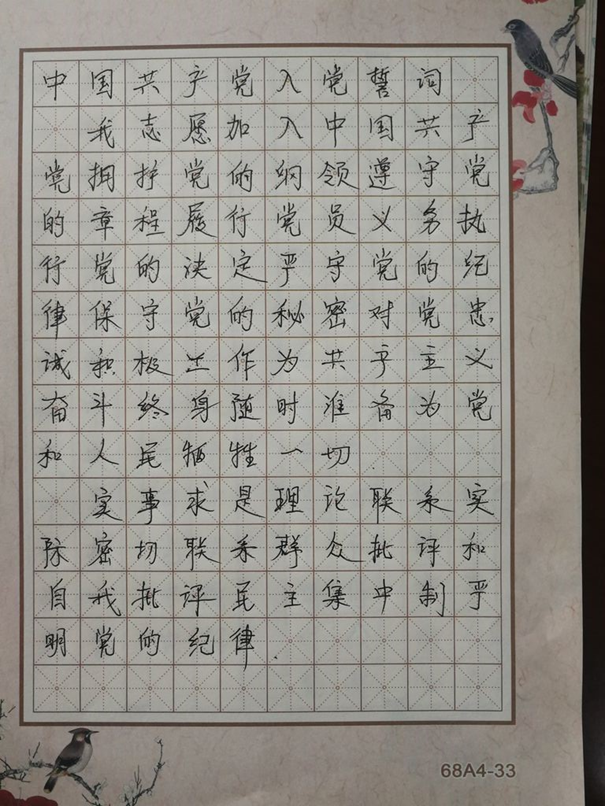 中国共产党入党誓词
我志愿加入中国共产
党拥护党的纲领遵守党
的章程履行党员义务执
行党的决定严守党的纪
律保守党的秘密对党忠
诚积极工作为共产主义
奋斗终身随时准备为党
和人民牺牲一切.
实事求是理论联系实
际密切联系群众批评和
自我批评民主集中制严
明党的纪律.
68A4-33